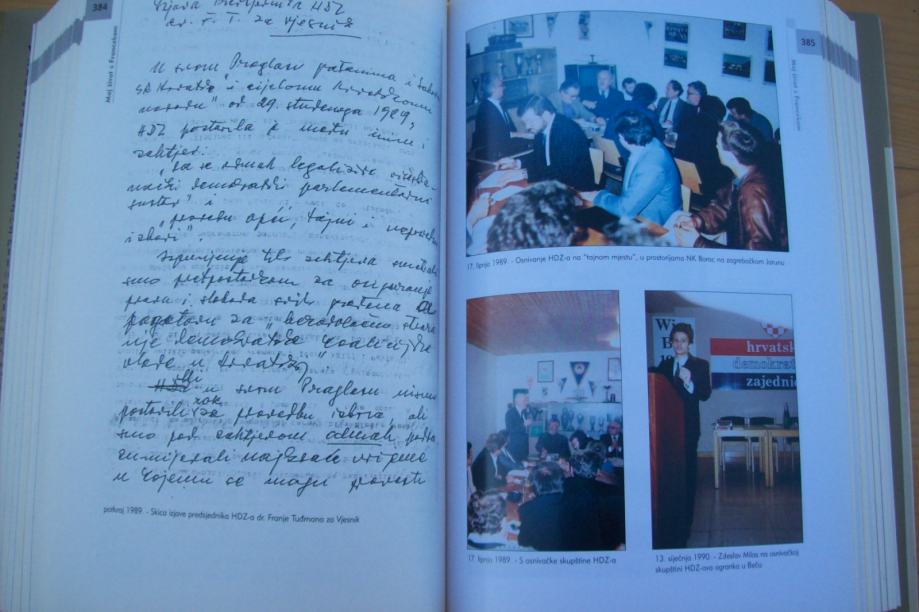 384
Moj život s Francekom
Izjava Predsjednika HDZ
dr. F. T. za Vjesnik
U svom Proglasu građanima i Saboru
SR Hrvatske i cijelomu hrvatskomu
narodu" od 29. studenoga 1989,
HDZ postavila je među inim i
zahtjev:
„da se odmah legalizira
demokratski parlamentarni
sustav" i
„provedu opći, tajni i
izbori".
Ispunjenje tih zahtjeva smatrali
smo pretpostavkom za osiguranje
prava i sloboda svih građana
pogotovu za
nje demokratske koalicijske
vlade u Hrvatskoj"
HDZ u svom Proglasu nismo
postavili rok za provedbu izbora, ali
smo pod zahtjevom odmah, podra
zumijevali najkraće vrijeme
u kojemu se mogu provesti
potkraj 1989. - Skica izjave predsjednika HDZ-a dr. Franje Tuđmana za Vjesnik
385
Moj život s Francekom
17. lipnja 1989. - Osnivanje HDZ-a na "tajnom mjestu", u prostorijama NK Borac na zagrebačkom Jarunu
17. lipnja 1989. - S osnivačke skupštine HDZ-a
Wien
hrvatsk
demokrat
zajednic
13. siječnja 1990. - Zdeslav Milas na osnivačkoj
skupštini HDZ-ova ogranka u Beču